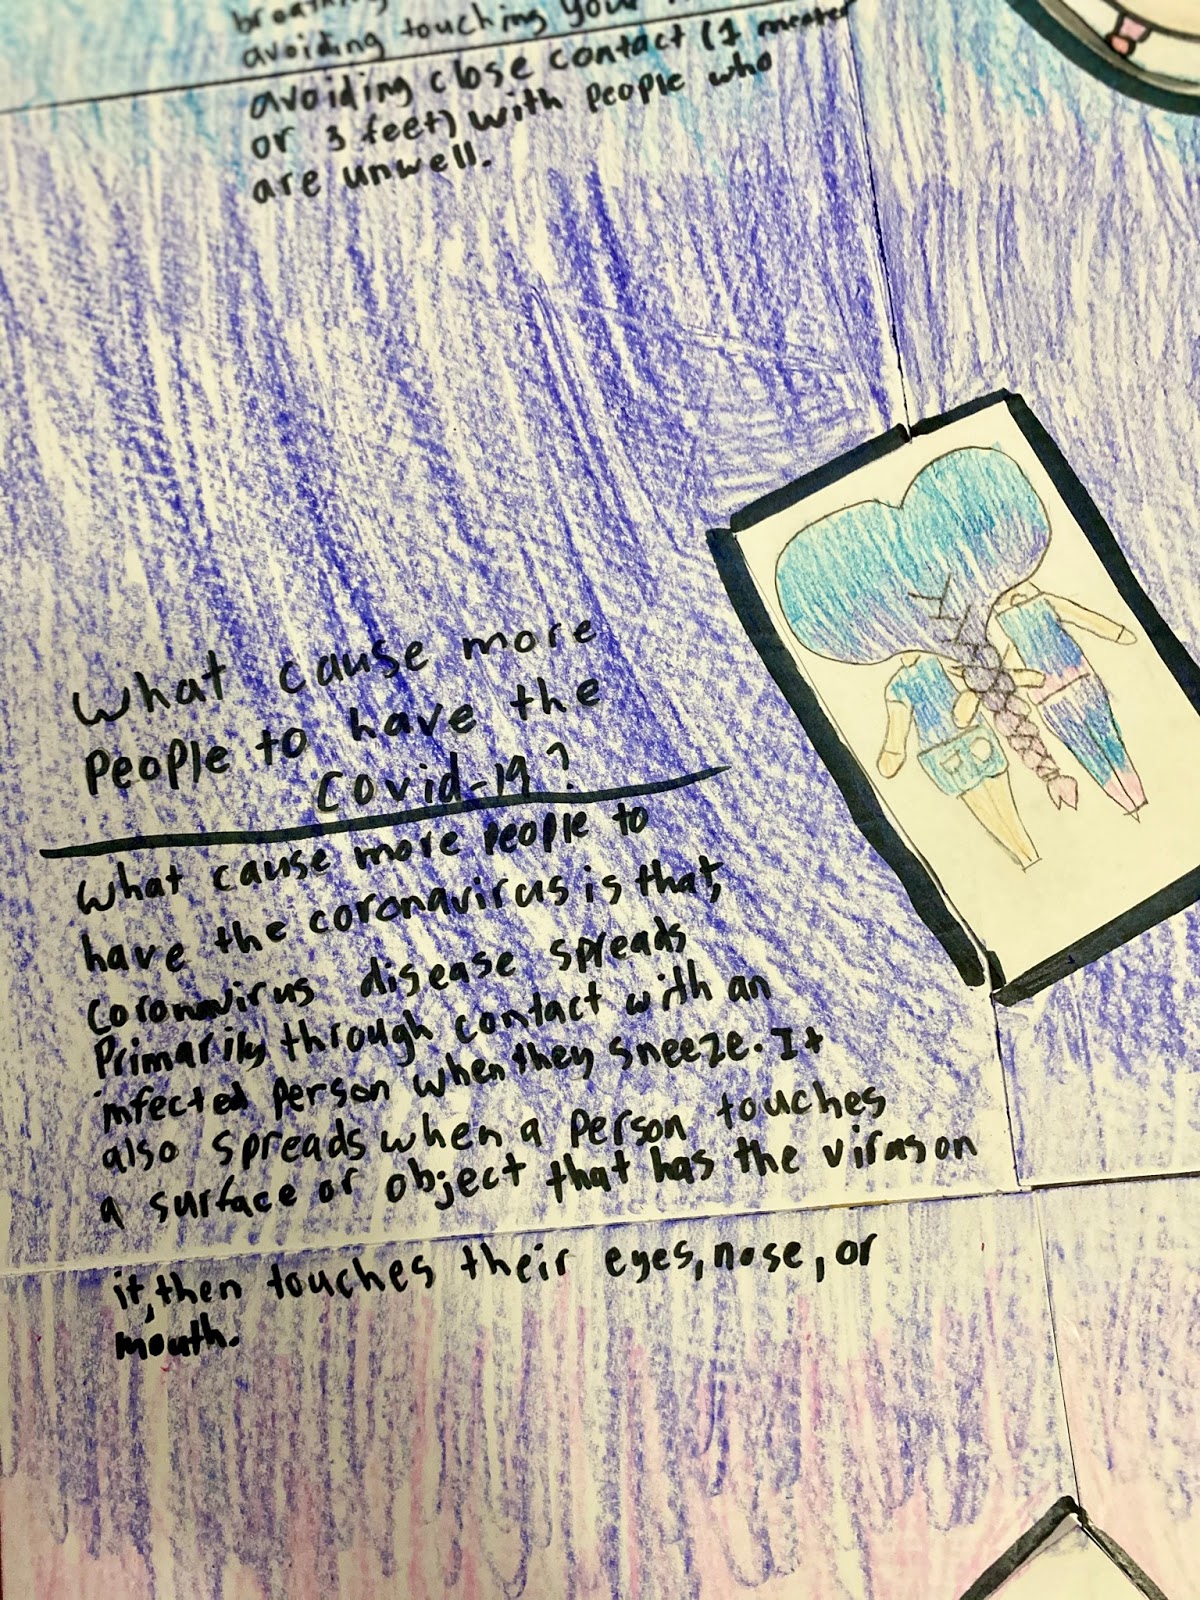 avoiding touching your
avoiding close contact (1 meater
or 3 feet) with people who
are unwell.
What cause more
People to have the
Covid-19?
What cause more people to
have the coronavirus is that,
coronavirus disease spreads
Primarily through contact with an
infected person when they sneeze. It
also spreads when a person touches
a surface or object that has the virus on
it, then touches their eyes, nose, or
mouth.